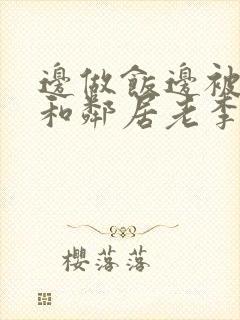 邊做飯邊被
和鄰居老李
櫻落落